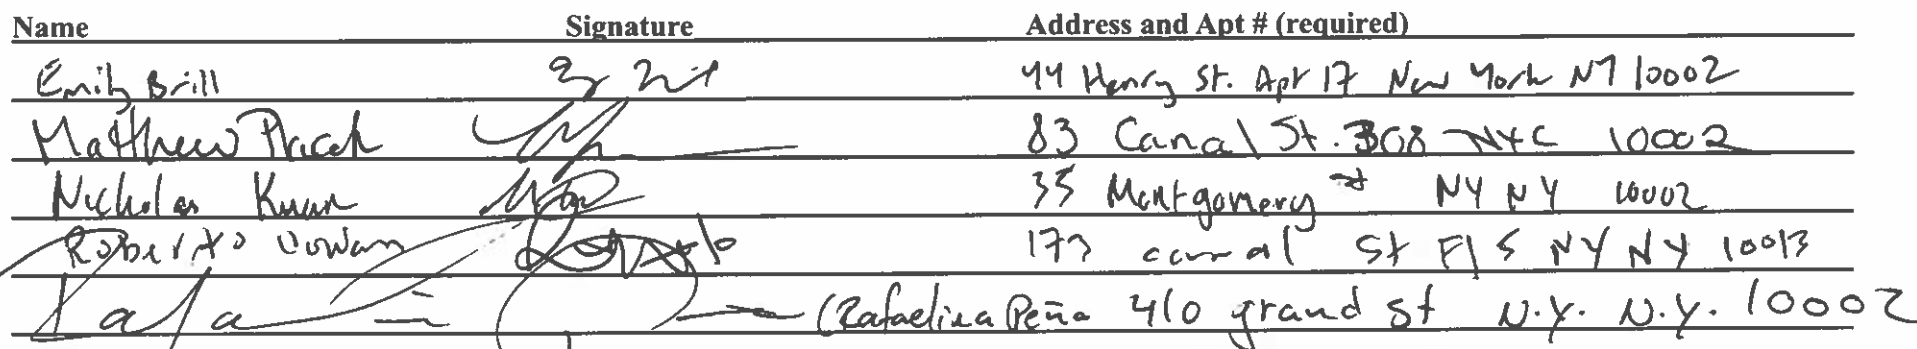 Name Signature Address and Apt # (required)
Emily Brill 44 Henry St. Apt 17 New York NY 10002
Matthew 83 Canal St. 308 NYC 10002
Nicholas Kuan 35 Montgomery St NY NY 10002
Roberto 173 canal St Fl 5 NY NY 10013
(Rafaelina Peña 410 grand St N.Y. N.Y. 10002